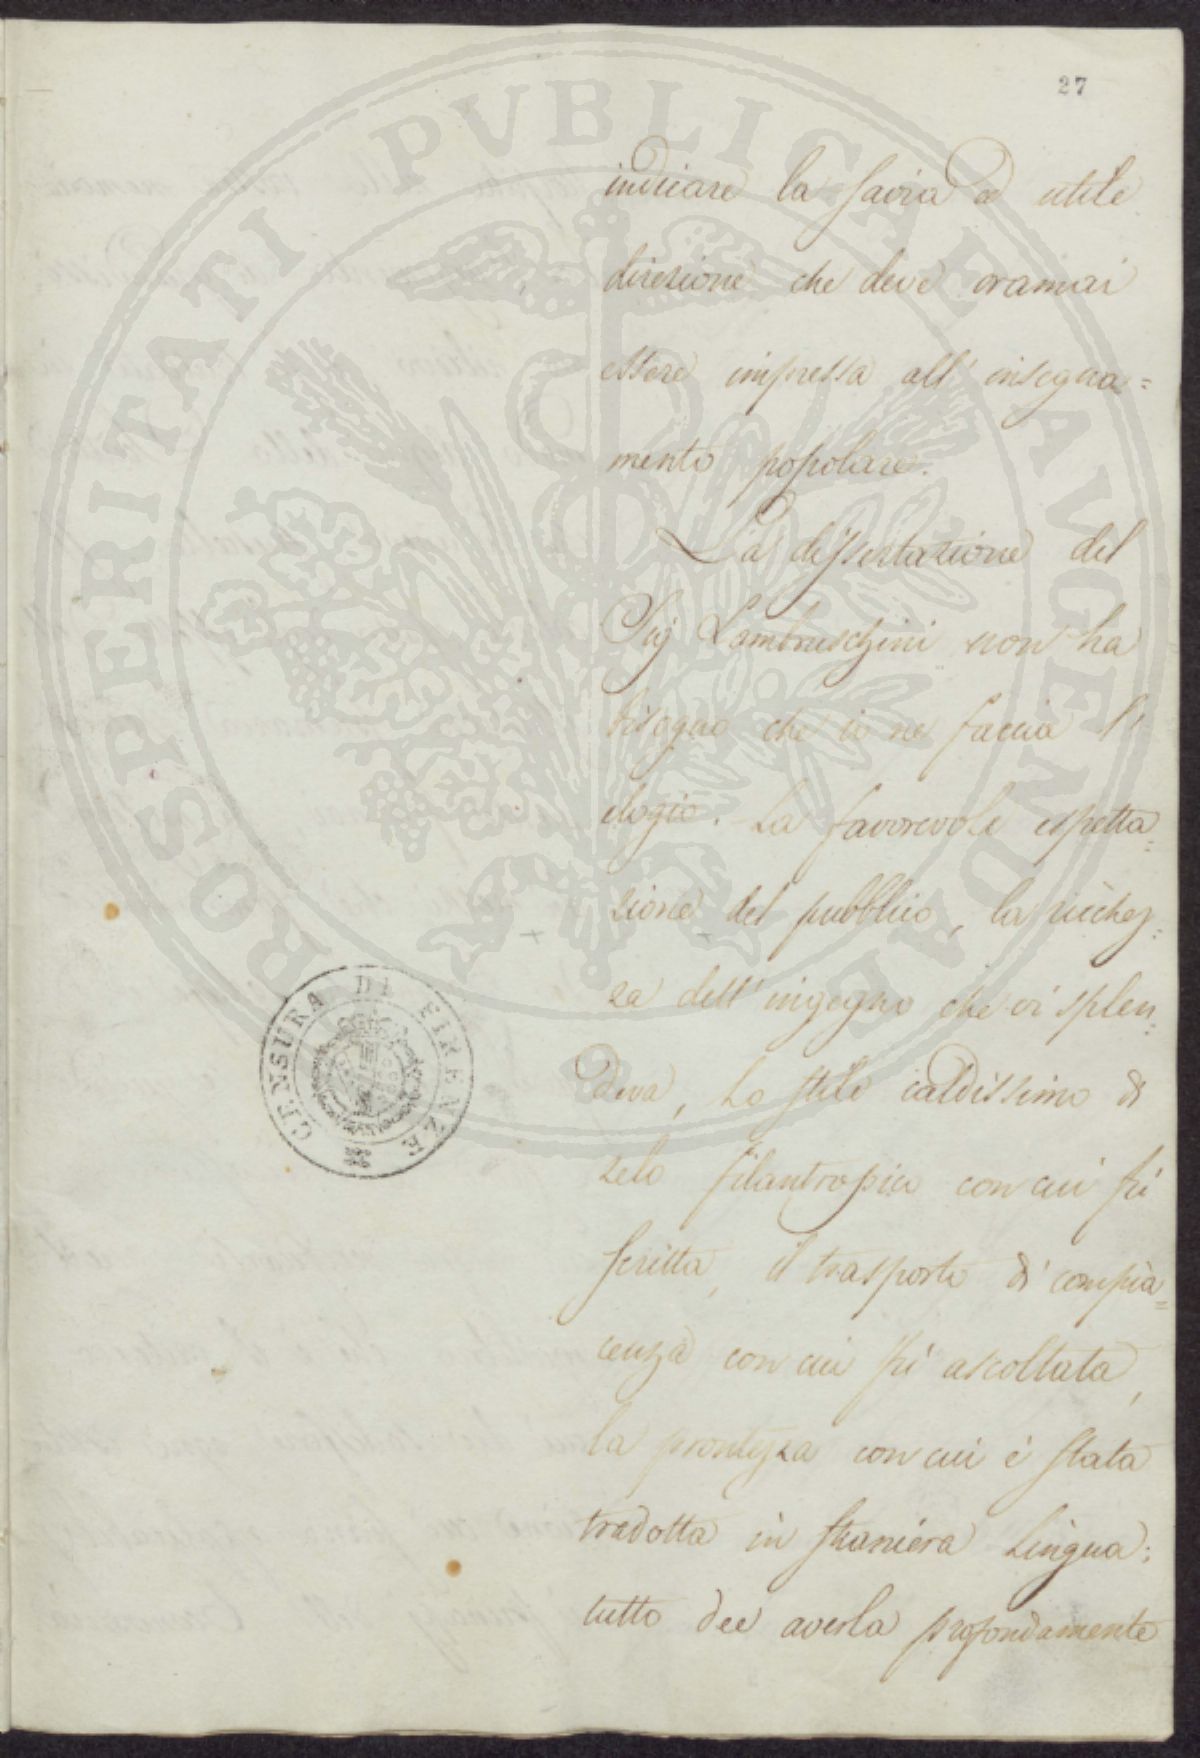 27
indicare la savia ed utile
direzione che deve oramai
essere impressa all'insegna=
mento popolare.
La dissertazione del
Sig Lambruschini non ha
bisogno che io ne faccia l'
elogio. La favorevole espetta=
zione del pubblico, la ricchez=
za dell'ingegno che vi splen=
deva, Lo stile caldissimo di
zelo filantropico con cui fù
scritta, il trasporto di compia=
cenza con cui fù ascoltata,
la prontezza con cui è stata
tradotta in straniera Lingua:
tutto dee averla profondamente
CENSURA DI FIRENZE
PROSPERITATI PVBLICAE AVGENDAE